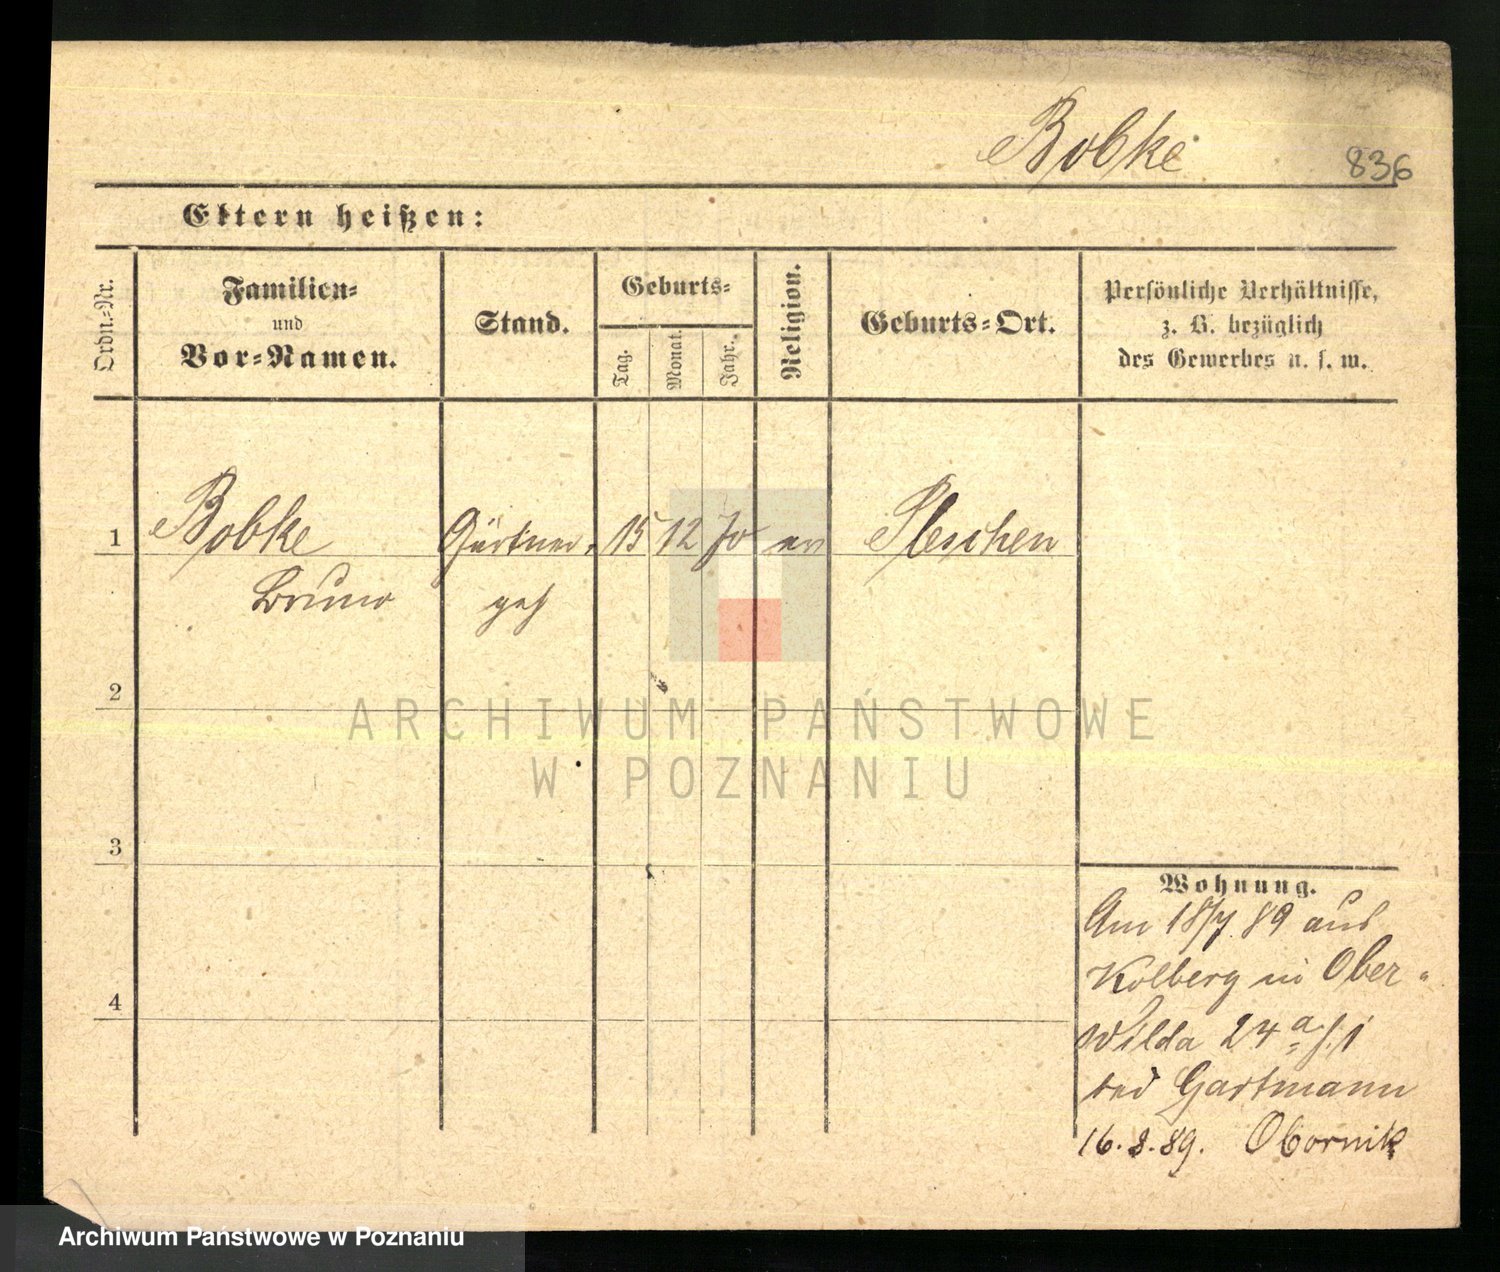 Bobke
836
Eltern heißen:
Ordn.-Nr.
Familien-
und
Vor-Namen.
Stand.
Geburts-
Tag.
Monat.
Jahr.
Religion.
Geburts-Ort.
Persönliche Verhältnisse,
z. B. bezüglich
des Gewerbes u. s. w.
1
Bobke Gärtner- 15 12 70 ev Pleschen
Bruno
2
ARCHIWUM PAŃSTWOWE
W POZNANIU
3
4
Wohnung.
Am 18/7 89 aus
Kolberg in Ober-
Wilda 24a
bei Gartmann
16.8.89. Obornik
Archiwum Państwowe w Poznaniu